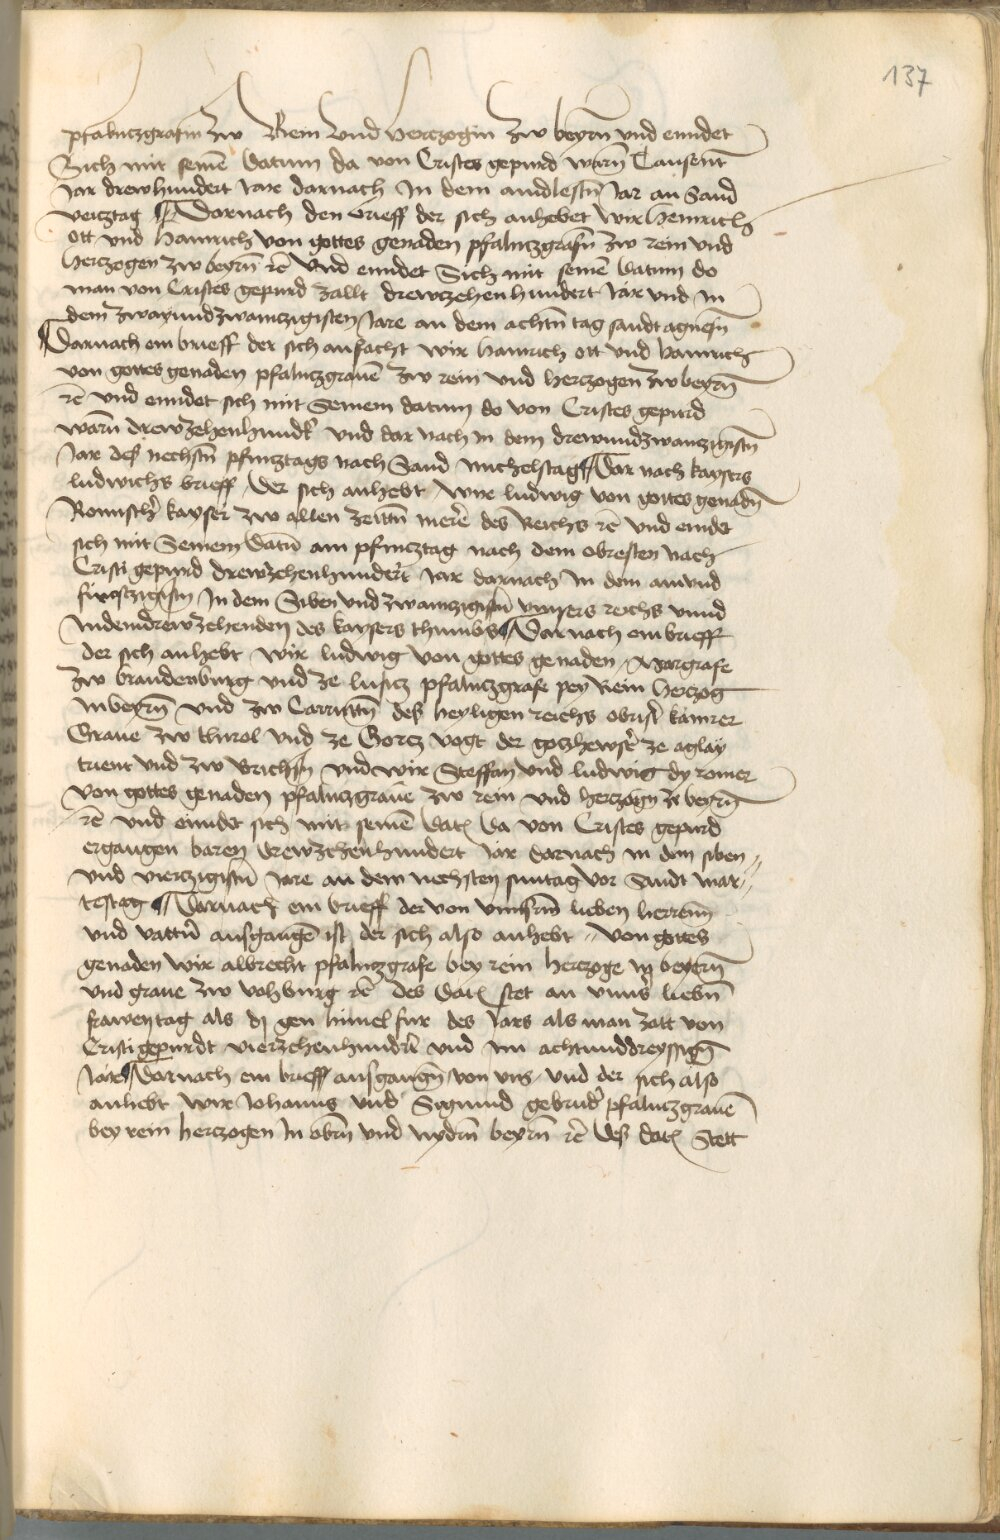 137
pfalntzgrafin zw Rein vnd Hertzogin zw beyrn̄ vnd enndet
Sich mit seinē Datum da von Cristes gepurd warn̄ Tausent
Jar drewhundert Jare darnach In dem aindlestn̄ Jar an Sand
veitztag ¶ Darnach den brieff der sich anhebet wir Heinrich
ott vnd Hainrich von gottes genaden pfalntzgrafn̄ zw rein vnd
Hertzogen zw beyrn̄ rc̄ vnd enndet Sich mit seinē Datum do
man von Cristes gepurd zallt drewtzehenhundert Jar vnd in
dem zwayundzwaintzigisten Jare an dem achtn̄ tag sandt agnesn̄
¶ Darnach ein brieff der sich anfacht wir Hainrich ott vnd Hainrich
von gottes genaden pfalntzgrauē zw rein vnd Hertzogen zw beyrn̄
rc̄ vnd enndet sich mit Seinem datum do von Cristes gepurd
warn̄ drewzehenhundt̄ vnd dar nach in dem drewundzwanzigistn̄
Jar des nechstn̄ pfintztags nach Sand michelstag ¶ Dar nach kaysers
ludwichs brieff Der sich anhebt wir ludwig von gottes genadn̄
Romischer kayser zw allen zeittn̄ merer des Reichs rc̄ vnd enndet
sich mit Seinem Datū am pfintztag nach dem obresten nach
Cristi gepurd drewzehenhundert Jare darnach In dem ainund
 In dem Siben vnd zwaintzigistn̄ vnnsers reichs vnnd
Indem drewzehenden des kaysers thumbs ¶ Dar nach ein brieff
der sich anhebt wir ludwig von gottes genaden Margrafe
zw brandenburg vnd ze lusitz pfalntzgrafe pey Rein Hertzog
In beyrn̄ vnd zw Carnnttn̄ des heyligen reichs obrist̄ kamrer
Graue zw thirol vnd ze Gortz vogt der gotzhewser ze aglay
trient vnd zw brichsn̄ vnd wir Steffan vnd ludwig dy romer
von gottes genaden pfalntzgraue zw rein vnd hertzogn̄ ze beyrn̄
rc̄ vnd enndet sich mit seinē Dat Da von Cristes gepurd
ergangen waren drewzehenhundert Jar darnach in dem siben
vnd viertzigistn̄ Jare an dem nechsten suntag vor Sandt mar
testag ¶ Darnach ein brieff der von vnnsrm̄ lieben herrenn
vnd vattn̄ ausgangē ist der sich also anhebt von gottes
genaden wir albrecht pfalntzgrafe bey rein hertzoge in beyrn̄
vnd graue zw vohburg rc̄ des Dat stet an vnns liebn̄
frawentag als di gen himel fur des Jars als man zalt von
Cristi gepurdt vierzehenhundert vnd im achtunddreyssign̄
Jare ¶ Darnach ein brieff ausgangn̄ von vns vnd der sich also
anhebt wir Johanns vnd Sigmund gebruder pfalntzgrauē
bey rein hertzogen In obrn̄ vnd nydrn̄ beyrn̄ rc̄ des dat Stett